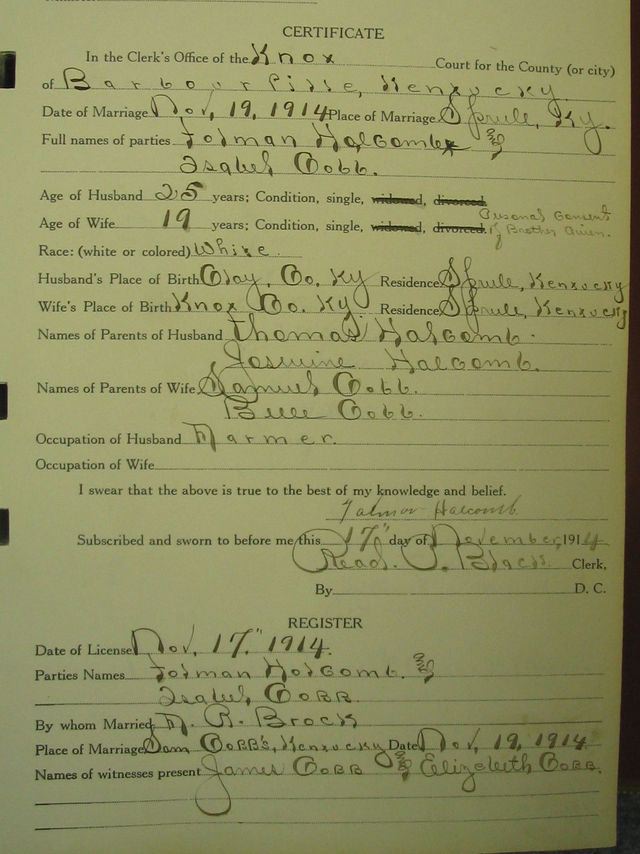 CERTIFICATE
In the Clerk's Office of the Knox Court for the County (or city)
of Barbourville, Kentucky
Date of Marriage Nov, 19, 1914 Place of Marriage Sprule, Ky.
Full names of parties Tolman Halcomb &
Isabel Cobb.
Age of Husband 25 years; Condition, single, widowed, divorced.
Personal Consent
Age of Wife 19 years; Condition, single, widowed, divorced. of Brother Given.
Race: (white or colored) White.
Husband's Place of Birth Clay, Co. Ky Residence Sprule, Kentucky
Wife's Place of Birth Knox Co. Ky. Residence Sprule, Kentucky
Names of Parents of Husband Thomas Halcomb.
Halcomb.
Names of Parents of Wife Samuel Cobb.
Cobb.
Occupation of Husband Farmer.
Occupation of Wife
I swear that the above is true to the best of my knowledge and belief.
Halcomb
Subscribed and sworn to before me this 17" day of November, 1914
Read P. Black Clerk,
By D. C.
REGISTER
Date of License Nov, 17," 1914.
Parties Names Tolman Holcomb. &
Isabel Cobb
By whom Married, R. Brock
Place of Marriage Sam Cobb's, Kentucky Date Nov, 19, 1914
Names of witnesses present James Cobb & Elizabeth Cobb.